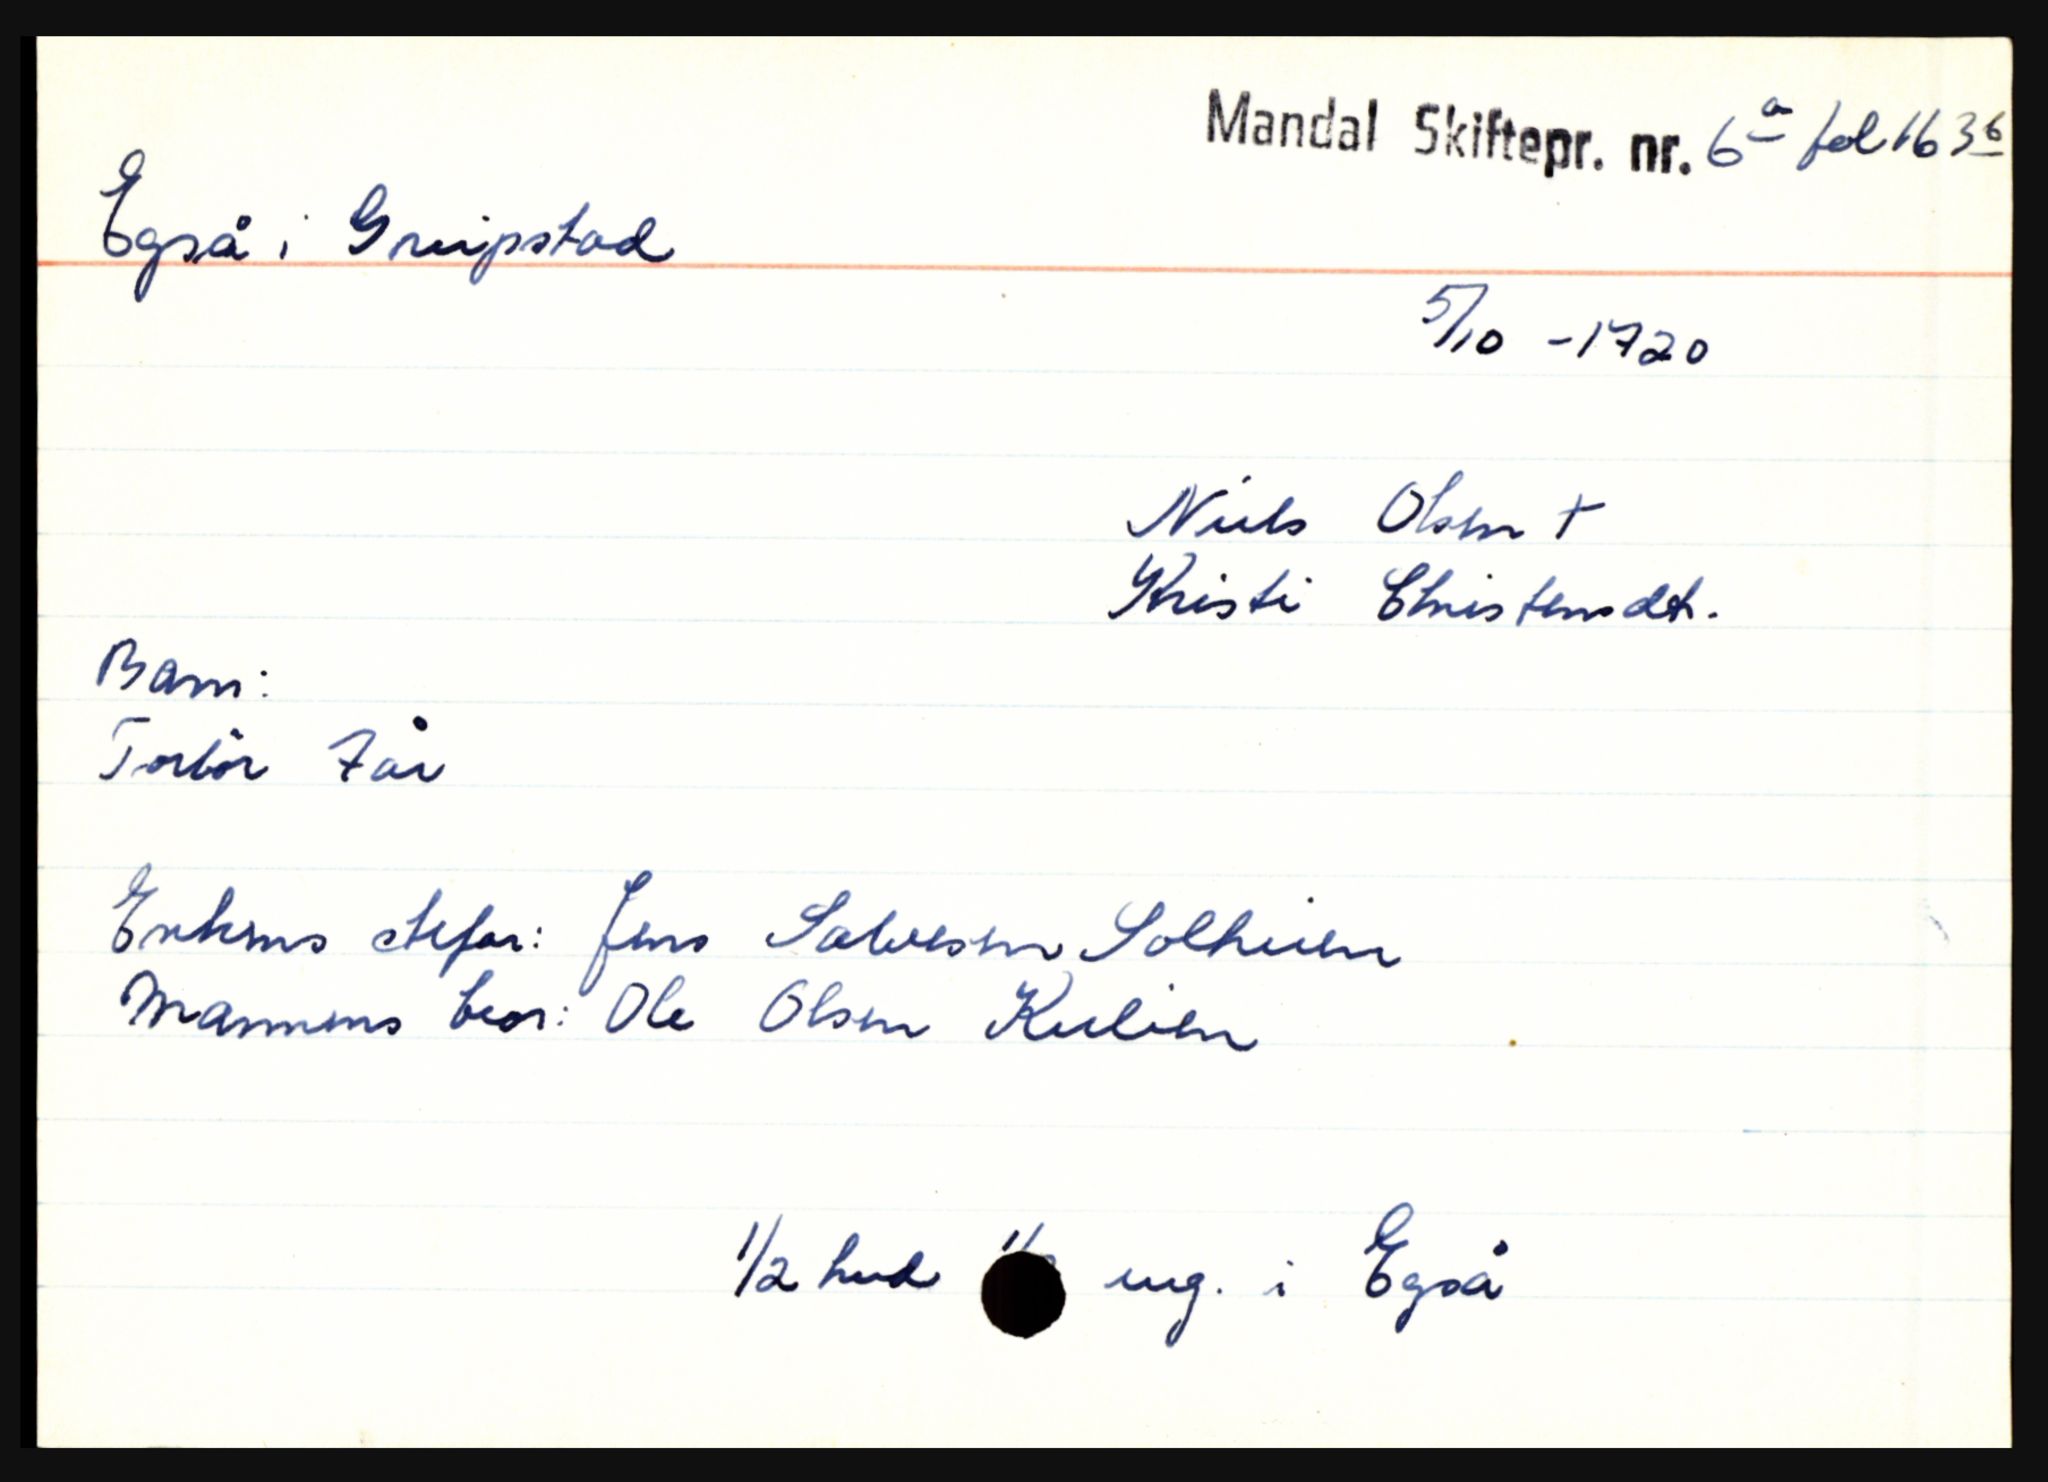 Mandal Skiftepr. nr. 6a fol 163b
Egså i Greipstad
5/10 -1720
Niels Olsen +
Kristi Christensdtr.
Barn:
Torbör 7 år
Enkens stefar: Jens Salvesen Solheien
Mannens bror: Ole Olsen Kulien
1/2 hud eng. i Egså